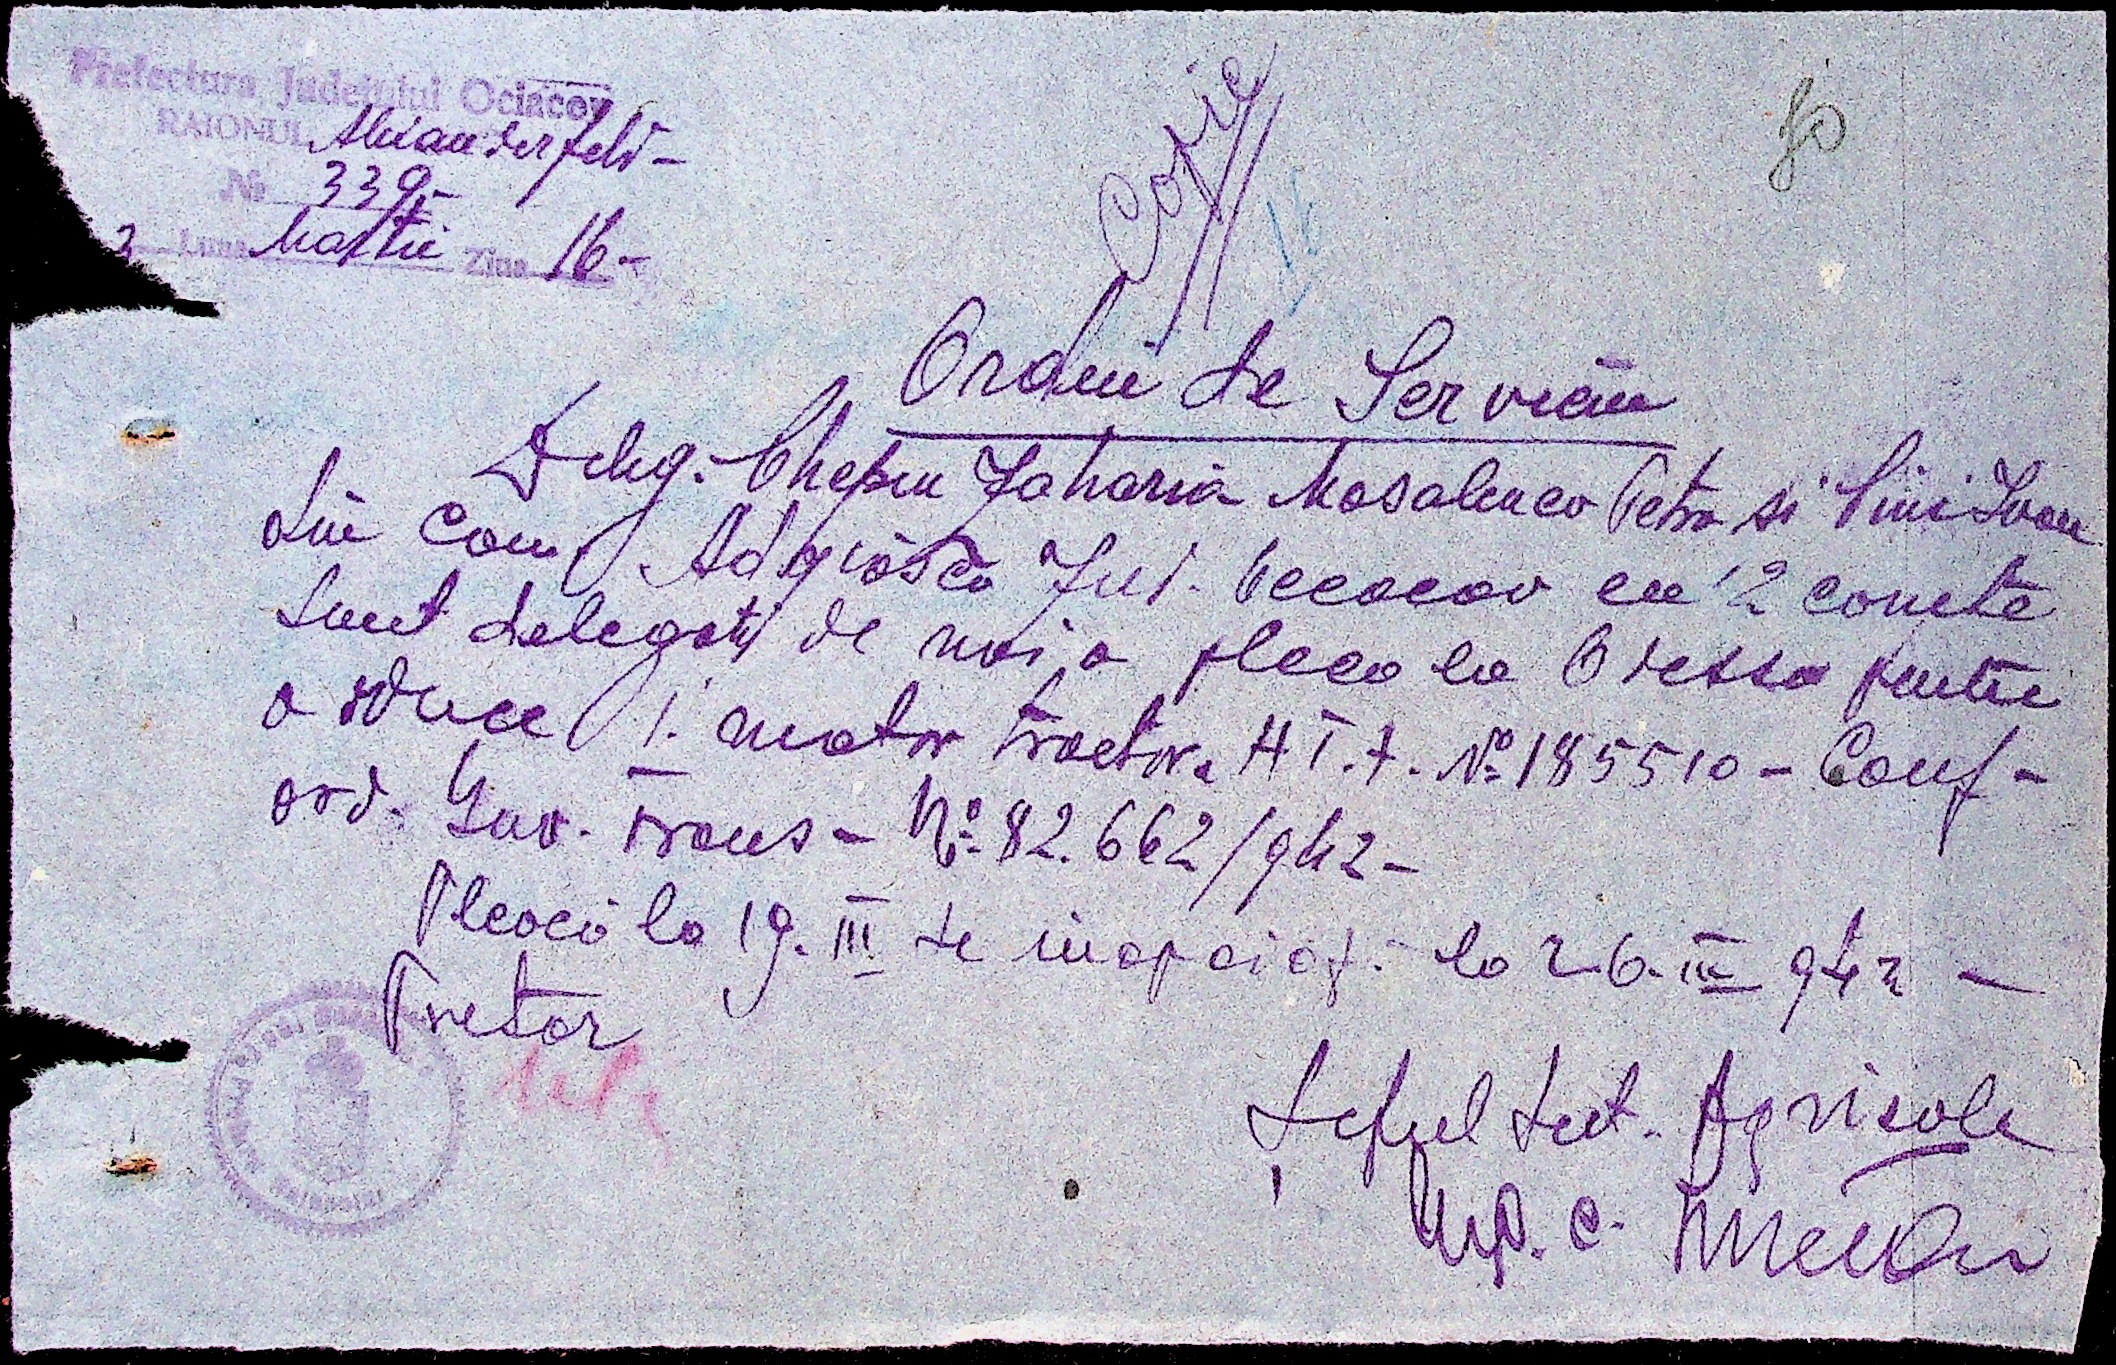 Prefectura Judeţului Ociacov
RAIONUL Alexanderfeld -
No 339 -
2 Luna Martie Ziua 16 -
Copie
Ordin de Serviciu
Deleg. Chepin Zaharia Mosalenco Petro si Ivan
din com. Adgiasca Jud. Occacov cu 2 carute
sunt delegaţi de noi, a pleca la Odessa pentru
a aduce 1. motor tractor. H T. Z. No 185510 - Conf -
ord. Guv. Trans - No 82.662/942 -
Pleacă la 19. III se inapoiaz. la 26. III 942 -
Pretor
Şeful Sect. Agricole